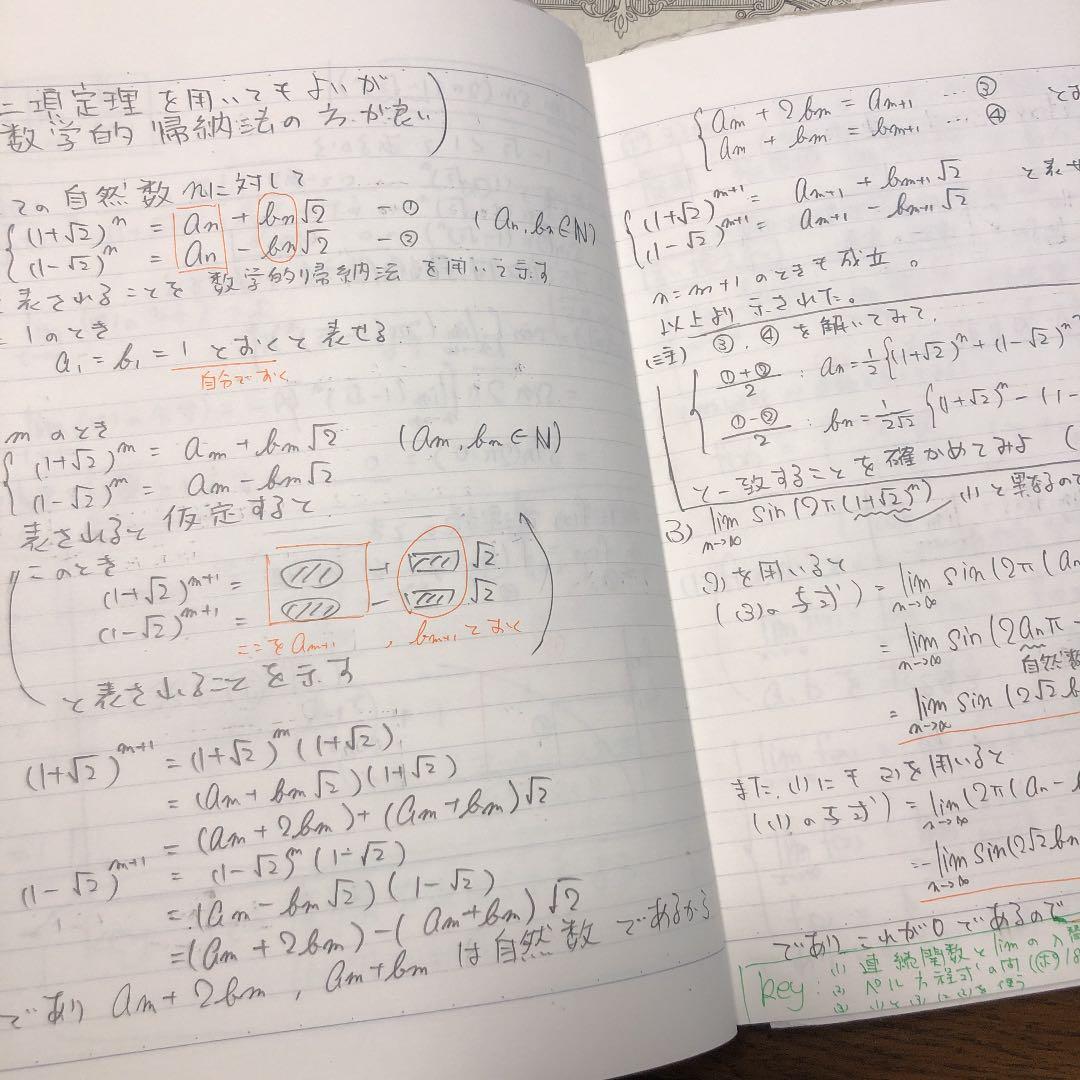 二項定理を用いてもよいが
数学的帰納法の方が良い
ての自然数nに対して
(1+√2)^n = an + bn√2 —①
(1-√2)^n = an - bn√2 —② (an, bn∈N)
表されることを数学的帰納法を用いて示す
1のとき
a₁ = b₁ = 1 とおくと表せる.
自分でおく
mのとき
(1+√2)^m = am + bm√2 (am, bm∈N)
(1-√2)^m = am - bm√2
表されると仮定すると
このとき
(1+√2)^{m+1} = + √2
(1-√2)^{m+1} = - √2
ここをam+1 , bm+1とおく
と表されることを示す
(1+√2)^{m+1} = (1+√2)^m (1+√2)
= (am + bm√2)(1+√2)
= (am + 2bm) + (am + bm)√2
(1-√2)^{m+1} = (1-√2)^m (1-√2)
= (am - bm√2)(1-√2)
= (am + 2bm) - (am + bm)√2
であり am + 2bm , am + bm は自然数であるから
am + 2bm = am+1 … ③
am + bm = bm+1 … ④ とお
(1+√2)^{m+1} = am+1 + bm+1√2
(1-√2)^{m+1} = am+1 - bm+1√2 と表せ
n = m+1 のときも成立。
以上より示された。
(注) ③, ④を解いてみて,
(①+②)/2 : an = 1/2 {(1+√2)^n + (1-√2)^n
(①-②)/2 : bn = 1/2√2 {(1+√2)^n - (1-
と一致することを確かめてみよ (
3) lim n→∞ sin(2π(1+√2)^n) (1)と異なるので
(2)を用いると
((3)の与式) = lim n→∞ sin(2π(an
= lim n→∞ sin(2anπ -
自然数
= lim n→∞ sin(2√2 b
また, (1)にも(2)を用いると
((1)の与式) = lim n→∞ (2π(an - b
= -lim n→∞ sin(2√2 bn
であり これが0であるので
key: (1) 連続関数とlimの入替
(2) ペル方程式の問
(3) (1)と(3)に(2)を使う